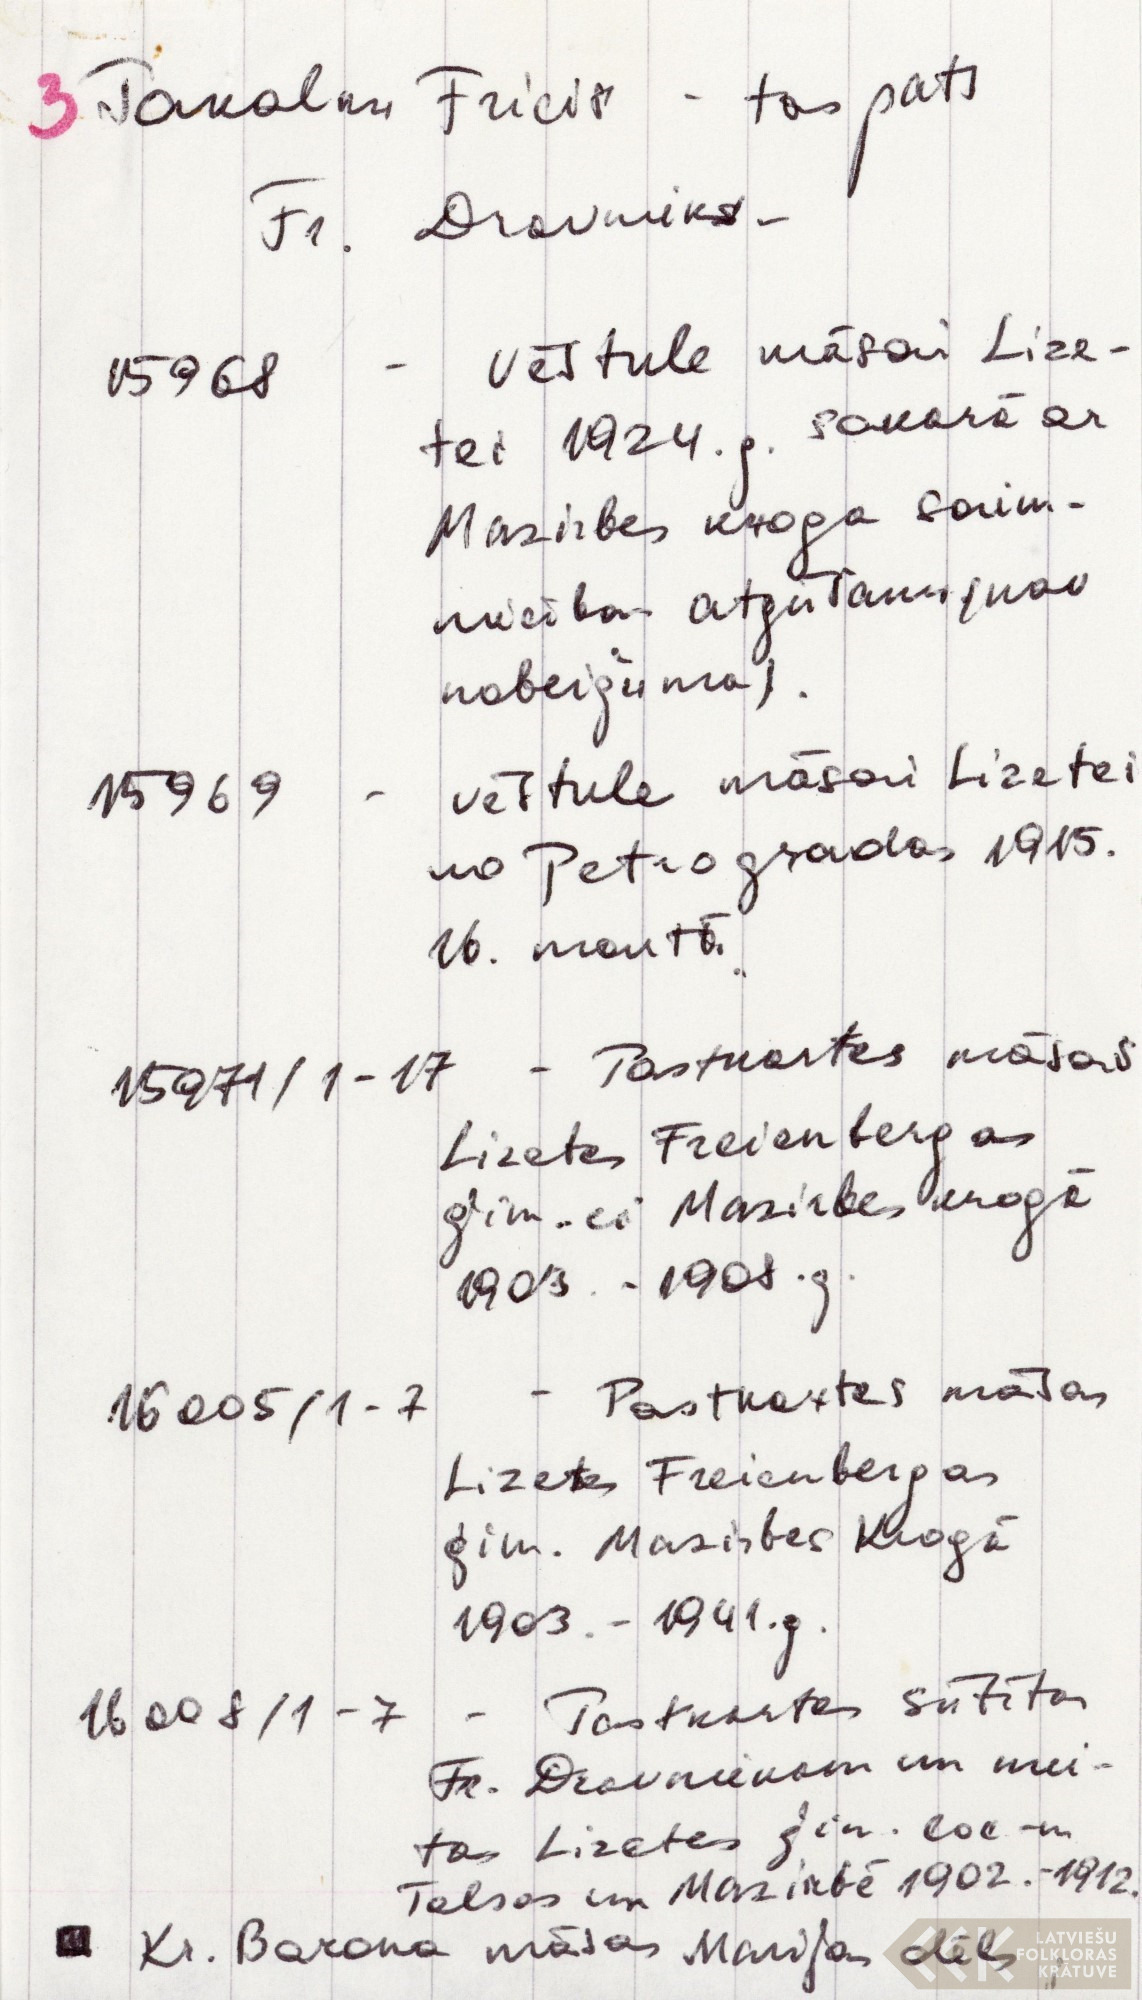 3 Jakalns Fricis - tas pats
Fr. Dravnieks -
15968 - Vēstule māsai Lize-
tei 1924.g. sakarā ar
Mazirbes kroga saim-
niecības atgūšanu (nav
nobeiguma).
15969 - vēstule māsai Lizetei
no Petrogradas 1915.
16. martā.
15971/1-17 - Pastkartes māsas
Lizetes Freienbergas
ģim.-ei Mazirbes krogā
1903. - 1908.g.
16005/1-7 - Pastkartes māsas
Lizetes Freienbergas
ģim. Mazirbes Krogā
1903. - 1941.g.
16008/1-7 - Pastkartes sūtītas
Fr. Dravniekam un mei-
tas Lizetes ģim. loc-m
Talsos un Mazirbē 1902.-1912.
Kr. Barona māsas Marijas dēls,
LATVIEŠU
FOLKLORAS
KRĀTUVE